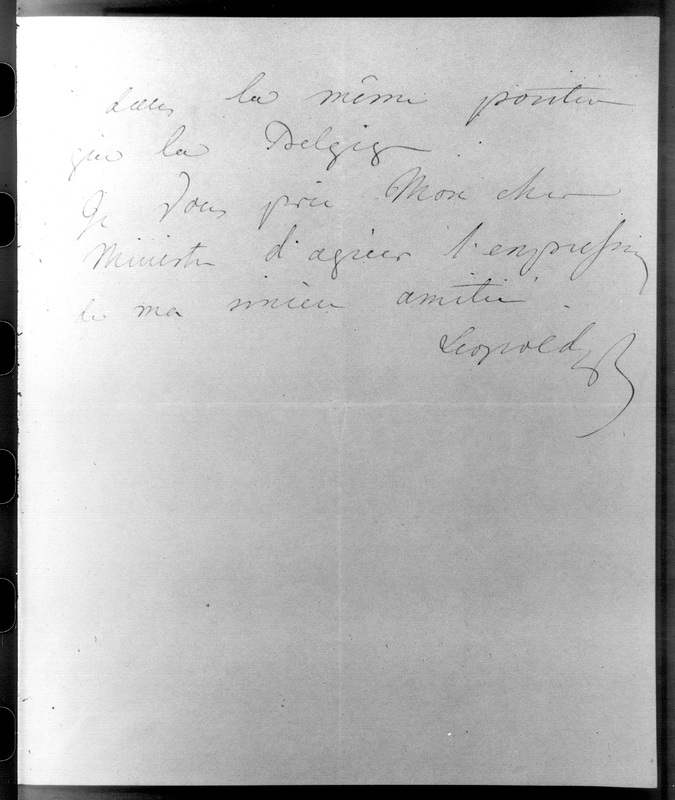 dans la même position
que la Belgique.
Je Vous prie Mon cher
Ministre d'agréer l'expression
de ma sincère amitié.
Leopold